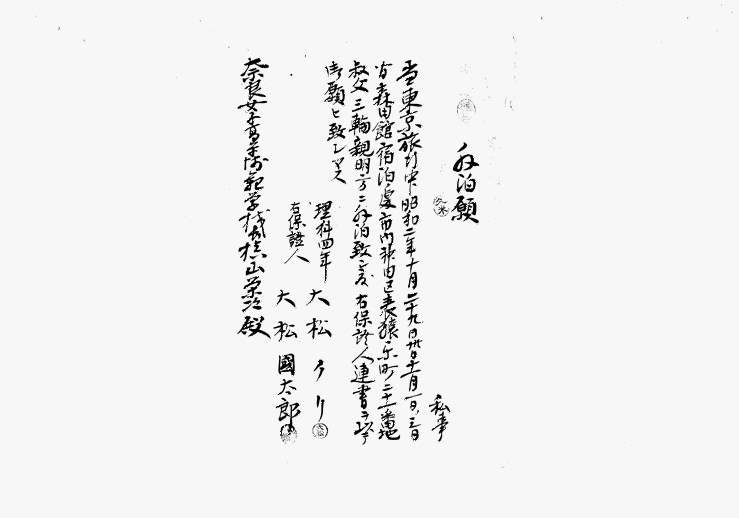 外泊願
私事
當東京旅行中昭和二年十月二十九日卅日十一月一日、三日
分森田館宿泊處市内神田區表猿楽町二十一番地
叔父三輪親明方ニ外泊致度右保證人連書ヲ以テ
御願ヒ致シマス
理科四年 大松クリ
右保證人 大松國太郎
奈良女子高等師範学校長槇山栄次殿